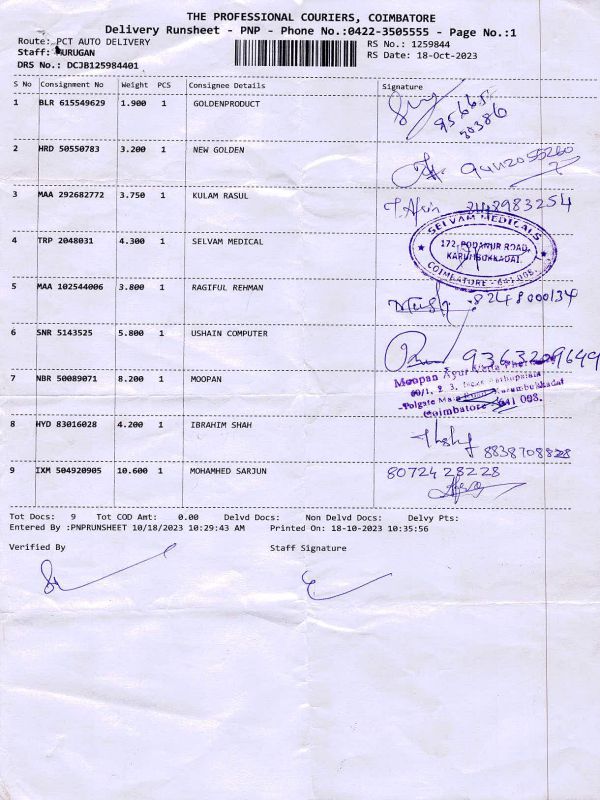 THE PROFESSIONAL COURIERS, COIMBATORE
Delivery Runsheet - PNP - Phone No.:0422-3505555 - Page No.:1
Route: PCT AUTO DELIVERY RS No.: 1259844
Staff: MURUGAN RS Date: 18-Oct-2023
DRS No.: DCJB125984401
S No Consignment No Weight PCS Consignee Details Signature
1 BLR 615549629 1.900 1 GOLDENPRODUCT
95665
80386
2 HRD 50550783 3.200 1 NEW GOLDEN
3 MAA 292682772 3.750 1 KULAM RASUL
SELVAM MEDICALS
4 TRP 2048031 4.300 1 SELVAM MEDICAL 172, PODANUR ROAD,
KARUMBUKKADAI
COIMBATORE - 641 008.
5 MAA 102544006 3.800 1 RAGIFUL REHMAN 8248000134
6 SNR 5143525 5.800 1 USHAIN COMPUTER 9363209649
7 NBR 50089071 8.200 1 MOOPAN Moopan
Coimbatore - 641 008.
8 HYD 83016028 4.200 1 IBRAHIM SHAH 8838708828
9 IXM 504920905 10.600 1 MOHAMHED SARJUN 8072428228
Tot Docs: 9 Tot COD Amt: 0.00 Delvd Docs: Non Delvd Docs: Delvy Pts:
Entered By :PNPRUNSHEET 10/18/2023 10:29:43 AM Printed On: 18-10-2023 10:35:56
Verified By Staff Signature